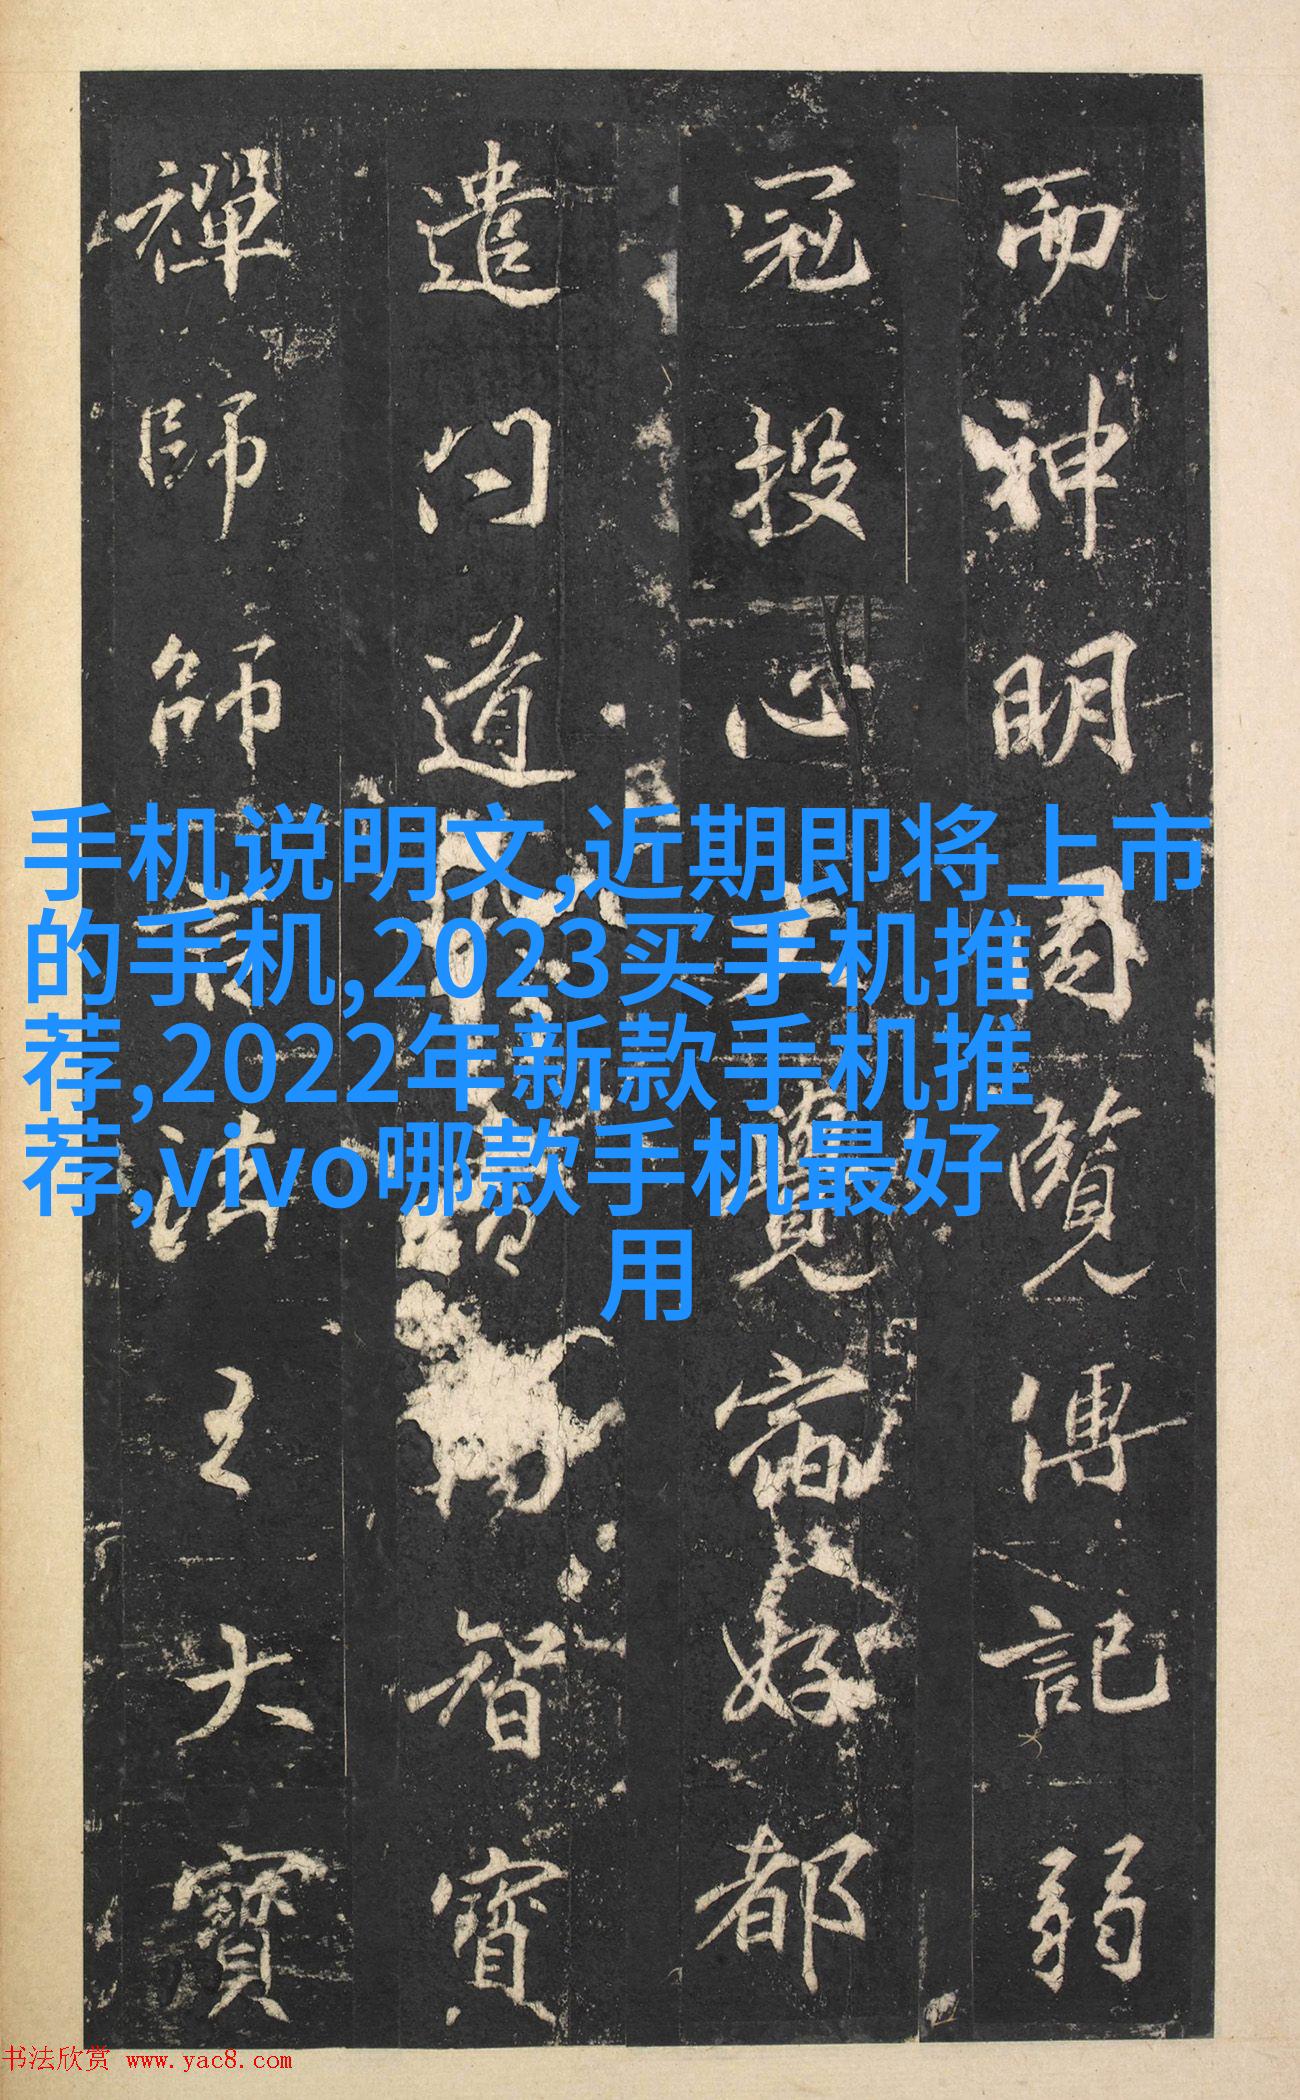 而神明固覽傳記弱
冠投心
覺宿好都
遣問道
智寶
禪師師言法王大寶
手机说明文,近期即将上市
的手机,2023买手机推
荐,2022年新款手机推
荐,vivo哪款手机最好
用
书法欣赏 www.yac8.com